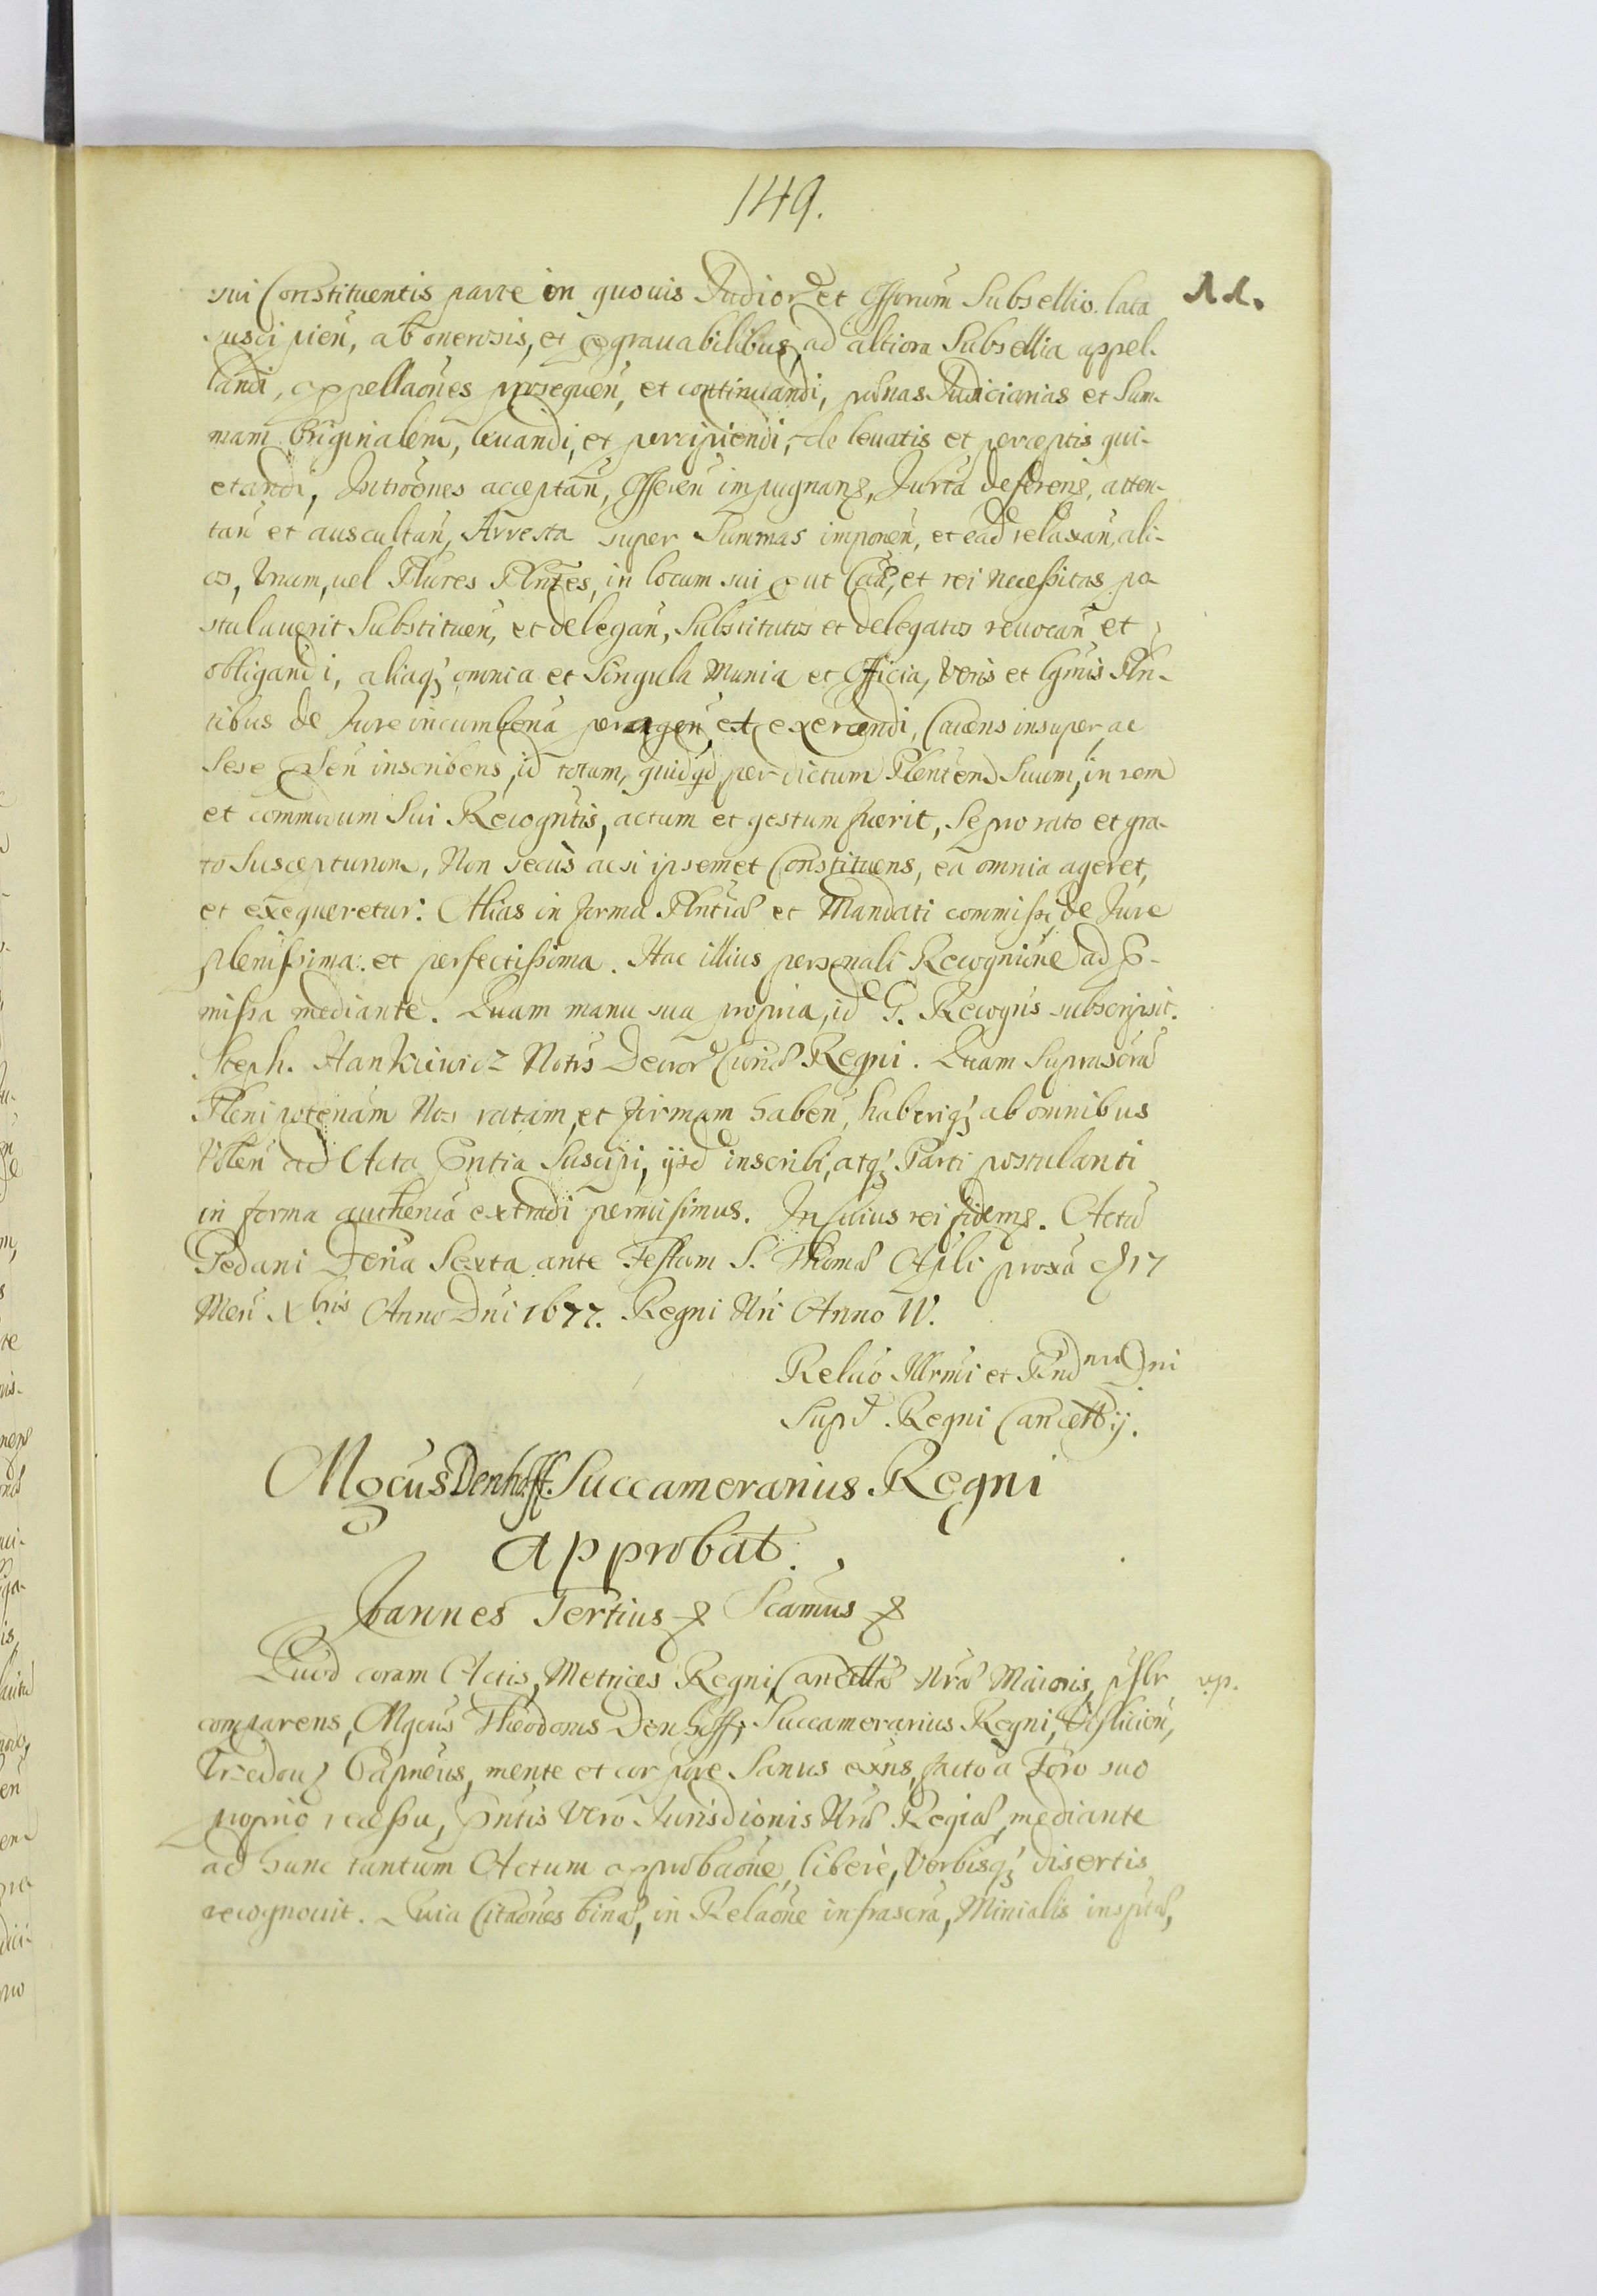 149.
sui Constituentis parte in quouis Judior et Offorum Subsellio lata
suscipien, ab onerosis, et pgrauabilibus, ad altiora Subsellia appel-
landi, appellaones prosequen, et continuandi, pænas Judiciarias et Sum-
mam Originalem, leuandi, et percipiendi, de leuatis et perceptis qui-
etandi, Introones acceptan, Offeren impugnan, Jurta deferen, atten-
tan et auscultan, Arresta super Summas imponen, et ead relaxan, ali-
os, Unum, uel Plures Plntes, in locum sui put Ca, et rei necessitas po-
stulauerit Substituen, et delegan, Substitutos et delegatos reuocan et
obligandi, aliaq omnia et Singula Munia et Officia, Veris et lgmis Pln-
tibus de Jure incumbena peragen et exercendi, Cauens insuper, ac
Sese psen inscribens, id totum, quidqd per dictum Plentem Suum, in rem
et commodum Sui Recogntis, actum et gestum fuerit, Se pro rato et gra-
to Suscepturum, Non secùs acsi ipsemet Constituens, ea omnia ageret,
et exequeretur. Alias in forma Plntiæ et Mandati commissi, de Jure
plenissima et perfectissima. Hac illius personali Recogniòne ad p-
missa mediante. Quam manu sua propria, id G. Recogns subscripsit.
Steph. Hankiewicz Notrs Decror Curiæ Regni. Quam Suprascra
Plenipotenam Nos ratam, et firmam haben, haberiq ab omnibus
Volen ad Acta pntia Suscipi, ijsd inscribi, atq Parti postulanti
in forma authenia extradi permisimus. In cuius rei fidem. Actu
Gedani Feria Sexta ante Festum S. Thomæ Apli proxa d 17
Men Xbris Anno Dni 1677. Regni Nri Anno IV.
Relao Illrmi et Rnd mi Dni
Supd. Regni Cancellrij.
Mgcus Denhoff Succamerarius Regni
approbat.
Joannes Tertius Scamus
Quod coram Actis, Metrices Regni, Cancellæ Nræ Maioris, pslr
comparens, Mgcus Theodorus Denhoff, Succamerarius Regni,
Capneus, mente et corpore Sanus exns, facto à Foro suo
proprio recessu, pntis Vero Jurisdionis Nræ Regiæ, mediante
ad hunc tantum Actum approbaone, liberè, Verbisq disertis
recognouit. Quia Citaones binas, in Relaone infrascra, Minialis insptas,